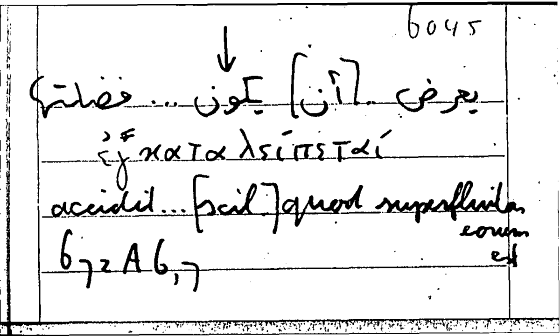 6045
يعرض ... [أن] يكون ... فضلتها
ἐγκαταλείπεταί
accidit ... [scil.] quod superfluitas
eorum
est
672 A 6,7